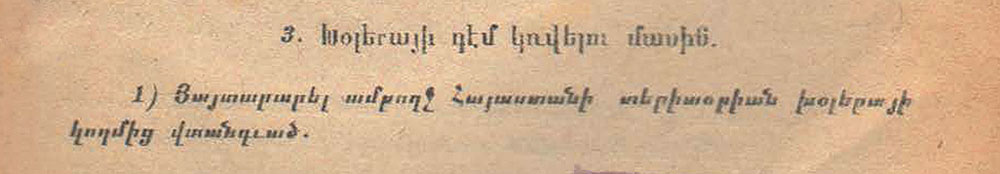 3. Խօլերայի դէմ կռվելու մասին.
1) Յայտարարել ամբողջ Հայաստանի տերիտօրիան խօլերայի
կողմից վտանգւած.